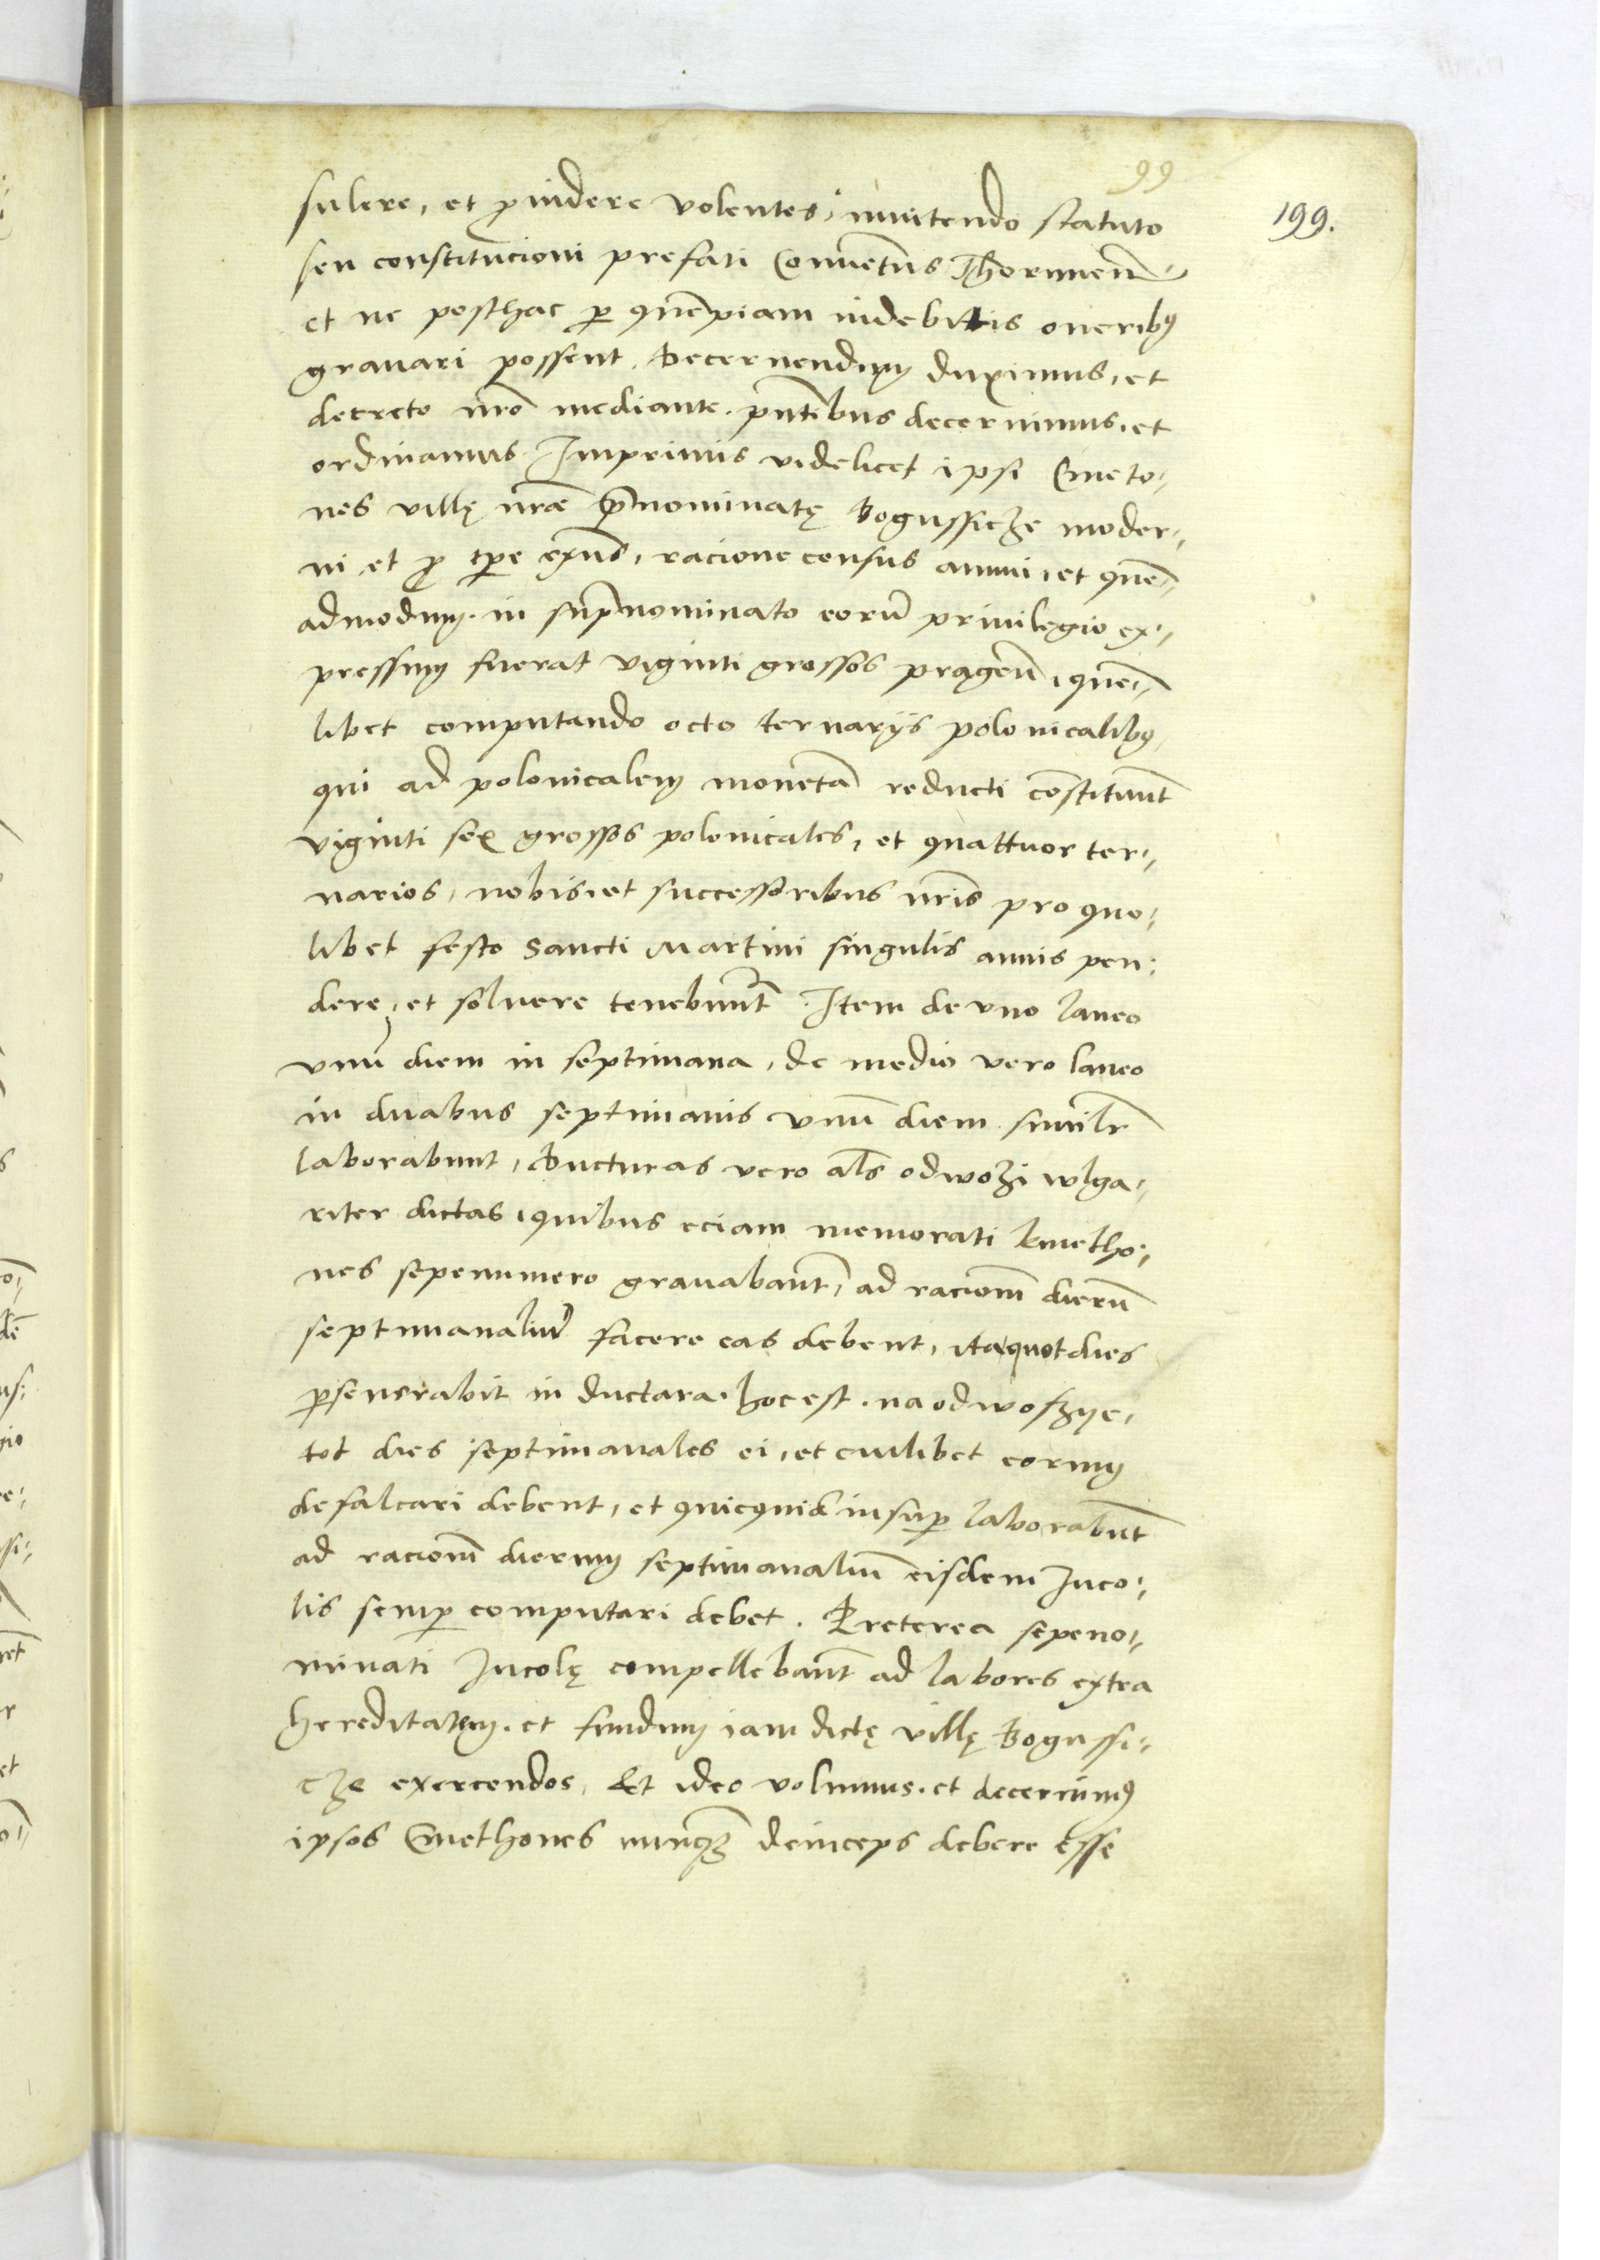 99
199.
sulere, et ꝓuidere volentes, innitendo statuto
seu constitucioni prefati Conuẽtus Thorunieñ
et ne posthac ꝑ quẽpiam indebittis oneribꝯ
grauari possent. Decernendum duximus, et
decreto nr̃o mediante. pñtibus decernimus, et
ordinamus. Imprimis videlicet ipsi Cmeto-
nes villę nrã p̃nominatę Bogussicze moder-
ni et ꝓ tp̃e exñs, racione census annui, et quẽ-
admodum. in sup̃nominato eorũ priuilegio ex-
pressum fuerat viginti grossos prageñ, quem-
libet computando octo ternarijs polonicalibꝯ,
qui ad polonicalem monetã reducti cõstituunt
viginti sex grossos polonicales, et quattuor ter-
narios, nobis, et successoribus nr̃is pro quo-
libet festo Sancti Martini singulis annis pen-
dere, et soluere tenebunt̃. Item de vno laneo
vnũ diem in septimana, de medio vero laneo
in duabus septimanis vnũ diem similr̃
laborabunt, Ducturas vero als̃ odwozi wlga-
riter dictas, quibus eciam memorati kmetho-
nes sepenumero grauabant̃, ad racionẽ dierũ
septimanaliũ facere eas debent, ita quot dies
ꝑseuerabit in ductara. hoc est. na odwoszye,
tot dies septimanales ei, et cuilibet eorum
defalcari debent, et quicquid insuꝑ laborabũt
ad racionẽ dierum septimanaliũ eisdem Inco-
lis semꝑ computari debet. Preterea sepeno-
minati Incolę compellebant̃ ad labores extra
hereditatem. et fundum iam dictę villę Bogussi-
cze exercendos, Et ideo volumus. et decernimꝯ
ipsos Cmethones nunqꝫ deinceps debere esse